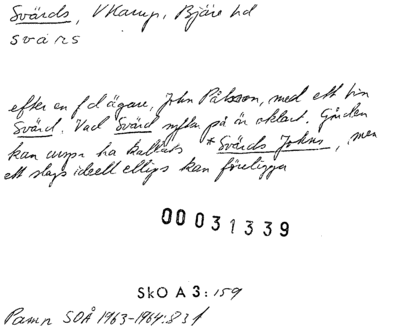 Svärds, V Karup, Bjäre hd
svärs
efter en f d ägare, John Pålsson, med ett bin
Svärd. Vad Svärd syftar på är oklart. Gården
kan urspr ha kallats *Svärds Johns, men
ett slags ideell ellips kan föreligga
00031339
SkO A 3:159
Pamp SOÅ 1963-1964:83f